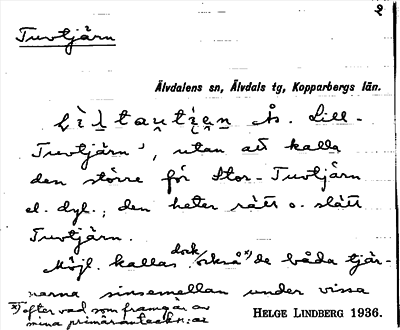 2
Tuvtjärn
Älvdalens sn, Älvdals tg, Kopparbergs län.
Ås. Lill-
Tuvtjärn', utan att kalla
den större för Stor-Tuvtjärn
el. dyl.; den heter rätt o. slätt
Tuvtjärn.
dock
Möjl. kallas också x) de båda tjär-
narna sinsemellan under vissa
x) efter vad som framgår av
mina primäranteckn:ar
HELGE LINDBERG 1936.